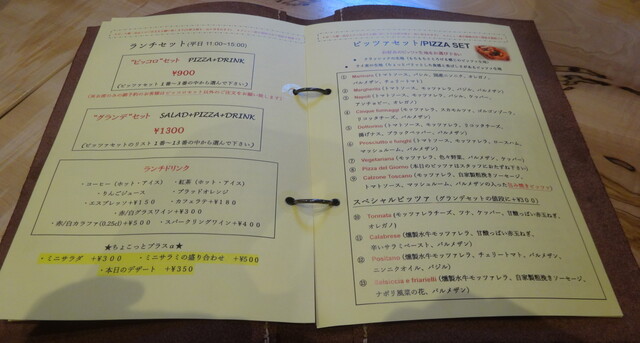 ランチセット(平日 11:00~15:00)
"ピッコロ"セット PIZZA+DRINK
¥900
(ピッツァセット1番~9番の中から選んで下さい)
"グランデ"セット SALAD+PIZZA+DRINK
¥1300
(ピッツァセットのリスト1番~13番の中から選んで下さい)
ランチドリンク
・コーヒー(ホット・アイス) ・紅茶(ホット・アイス)
・りんごジュース ・ブラッドオレンジ
・エスプレッソ+¥150 ・カフェラテ+¥180
・赤/白グラスワイン+¥300
・赤/白カラファ(0.25ℓ)+¥500 ・スパークリングワイン+¥400
★ちょこっとプラスα★
・ミニサラダ +¥300 ・ミニサラミの盛り合わせ +¥500
・本日のデザート +¥350
ピッツァセット/PIZZA SET
① Marinara(トマトソース、
② Margherita(トマトソース、モッツァレラ、バジル、
パルメザン)
③ Napoli(トマトソース、モッツァレラ、
アンチョビー、オレガノ)
④ Cinque formaggi(モッツァレラ、スカモルツァ、ゴルゴンゾーラ、
リコッタチーズ、パルメザン)
⑤ (トマトソース、モッツァレラ、リコッタチーズ、
揚げナス、ブラックペッパー、パルメザン)
⑥ Prosciutto e funghi(トマトソース、モッツァレラ、ロースハム、
マッシュルーム、パルメザン)
⑦ Vegetariana(モッツァレラ、色々野菜、パルメザン、ケッパー)
⑧ Pizza del Giorno(本日のピッツァはスタッフにおたずね下さい)
⑨ Calzone Toscana(モッツァレラ、自家製粗挽きソーセージ、
トマトソース、マッシュルーム、パルメザンの入った包み焼きピッツァ)
スペシャルピッツァ(グランデセットの値段に+¥300)
⑩ Tonnata(モッツァレラチーズ、ツナ、ケッパー、甘酸っぱい赤玉ねぎ、
オレガノ)
⑪ Calabrese(燻製水牛モッツァレラ、甘酸っぱい赤玉ねぎ、
辛いサラミペースト、パルメザン)
⑫ Positano(燻製水牛モッツァレラ、チェリートマト、パルメザン、
ニンニクオイル、バジル)
⑬ Salsiccia e friarielli(燻製水牛モッツァレラ、自家製粗挽きソーセージ、
ナポリ風菜の花、パルメザン)